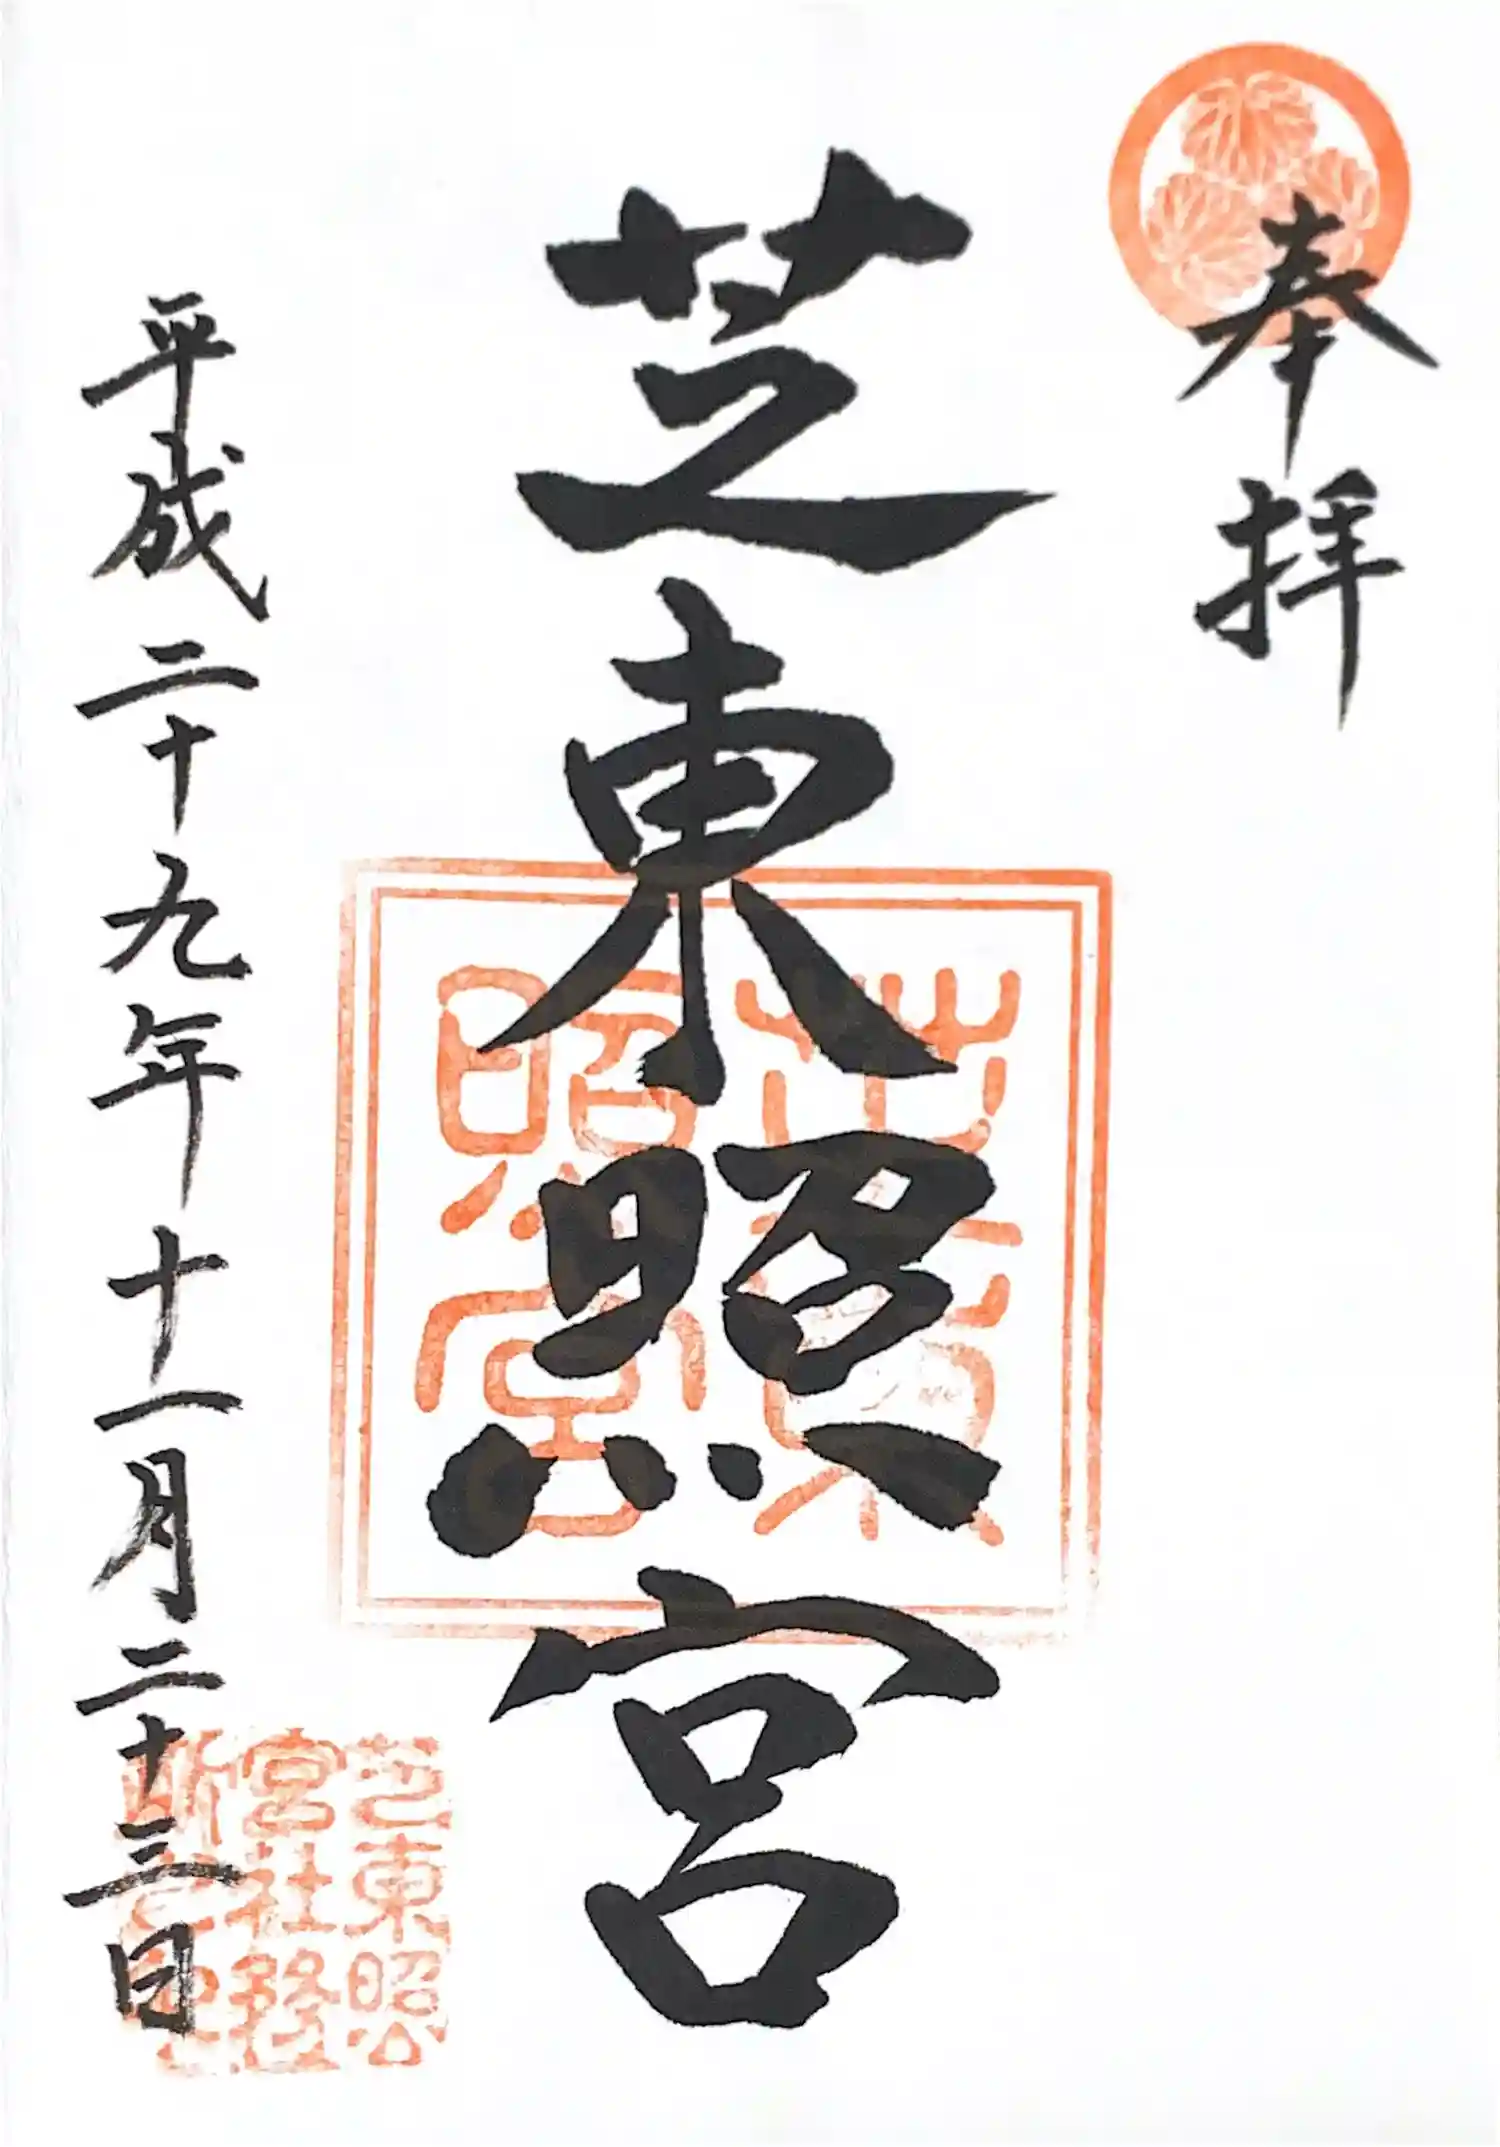 奉拝
芝東照宮
平成二十九年十一月二十三日
芝東
照宮
芝東照
宮社務